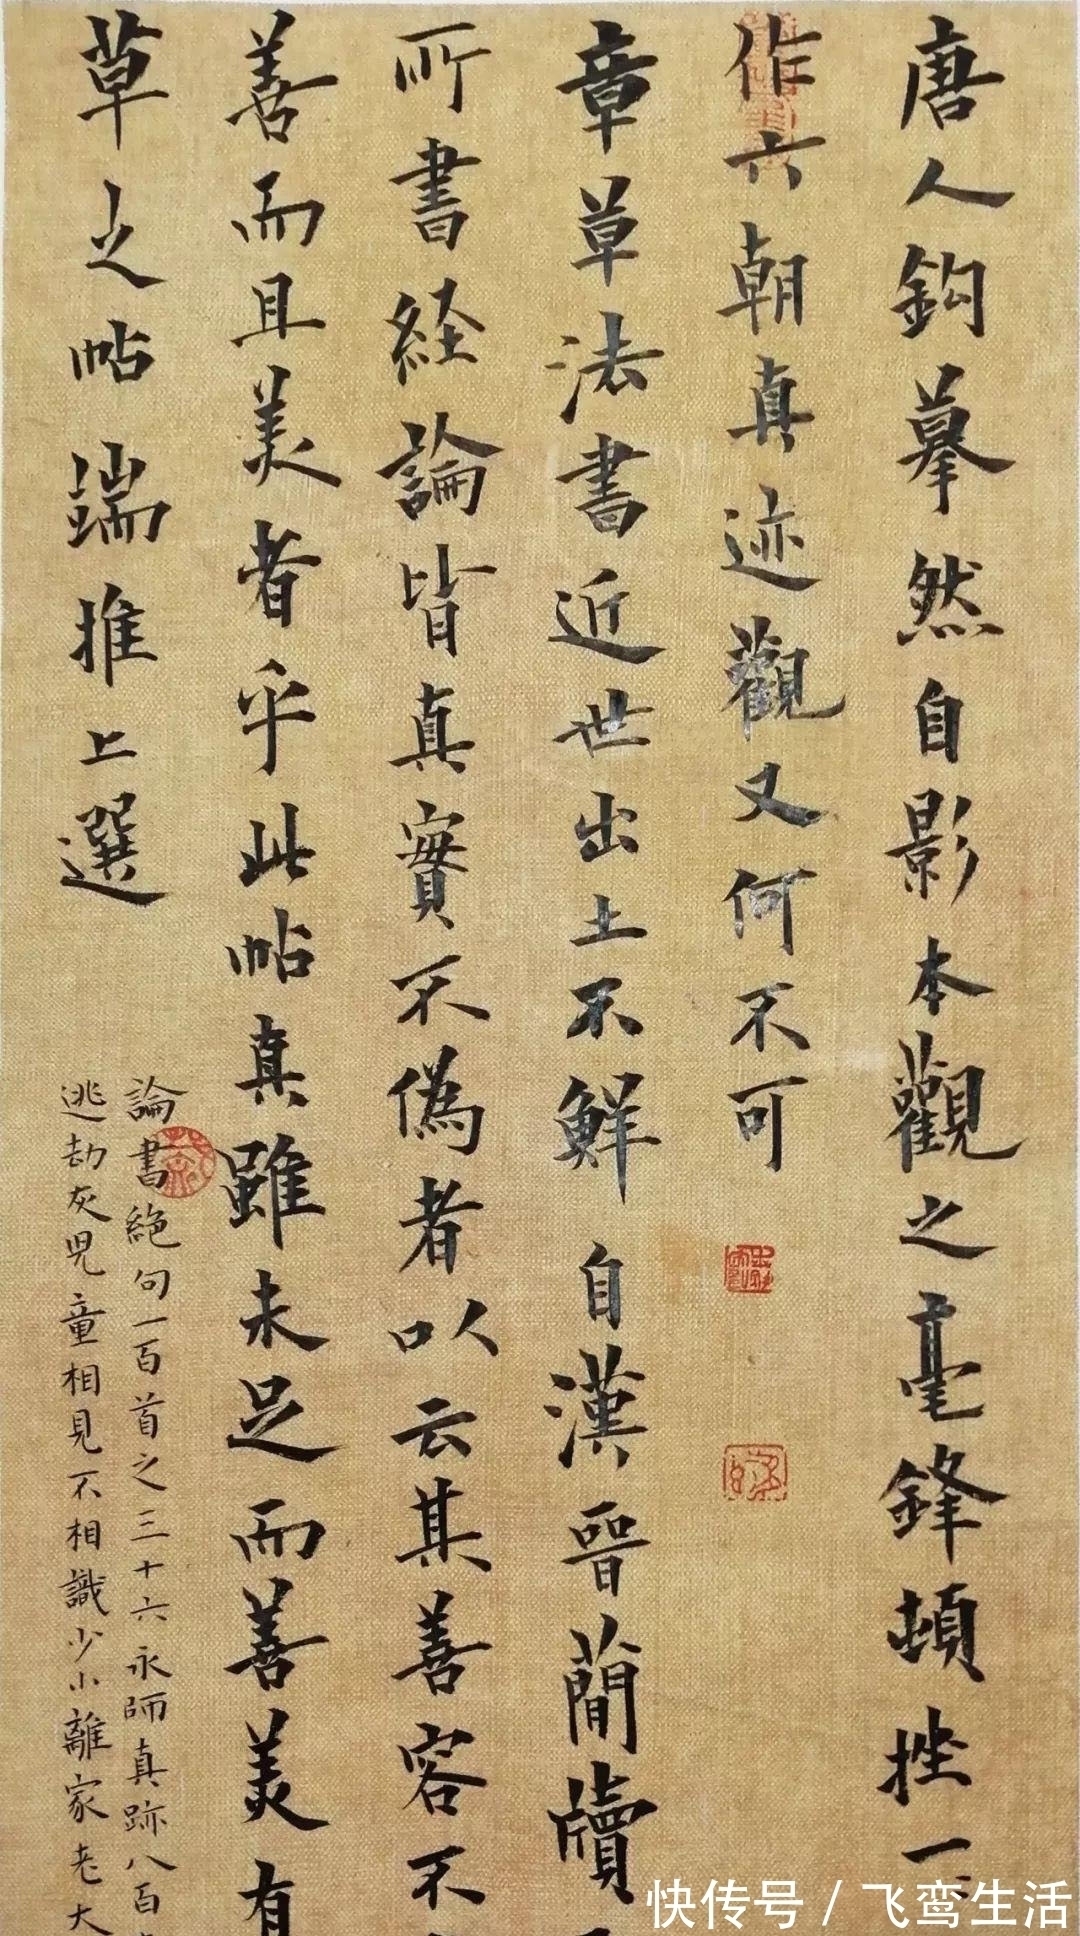 唐人鈎摹然自影本觀之毫鋒頓挫一
作六朝真迹觀又何不可
章草法書近世出土不鮮自漢晉蕑牘
所書経論皆真實不偽者以云其善容不
善而且美者乎此帖真雖未足而善美有
草之帖端推上選
論書絕句一百首之三十六永師真跡八百
逃劫灰児童相見不相識少小離家老大
快传号/飞鸾生活